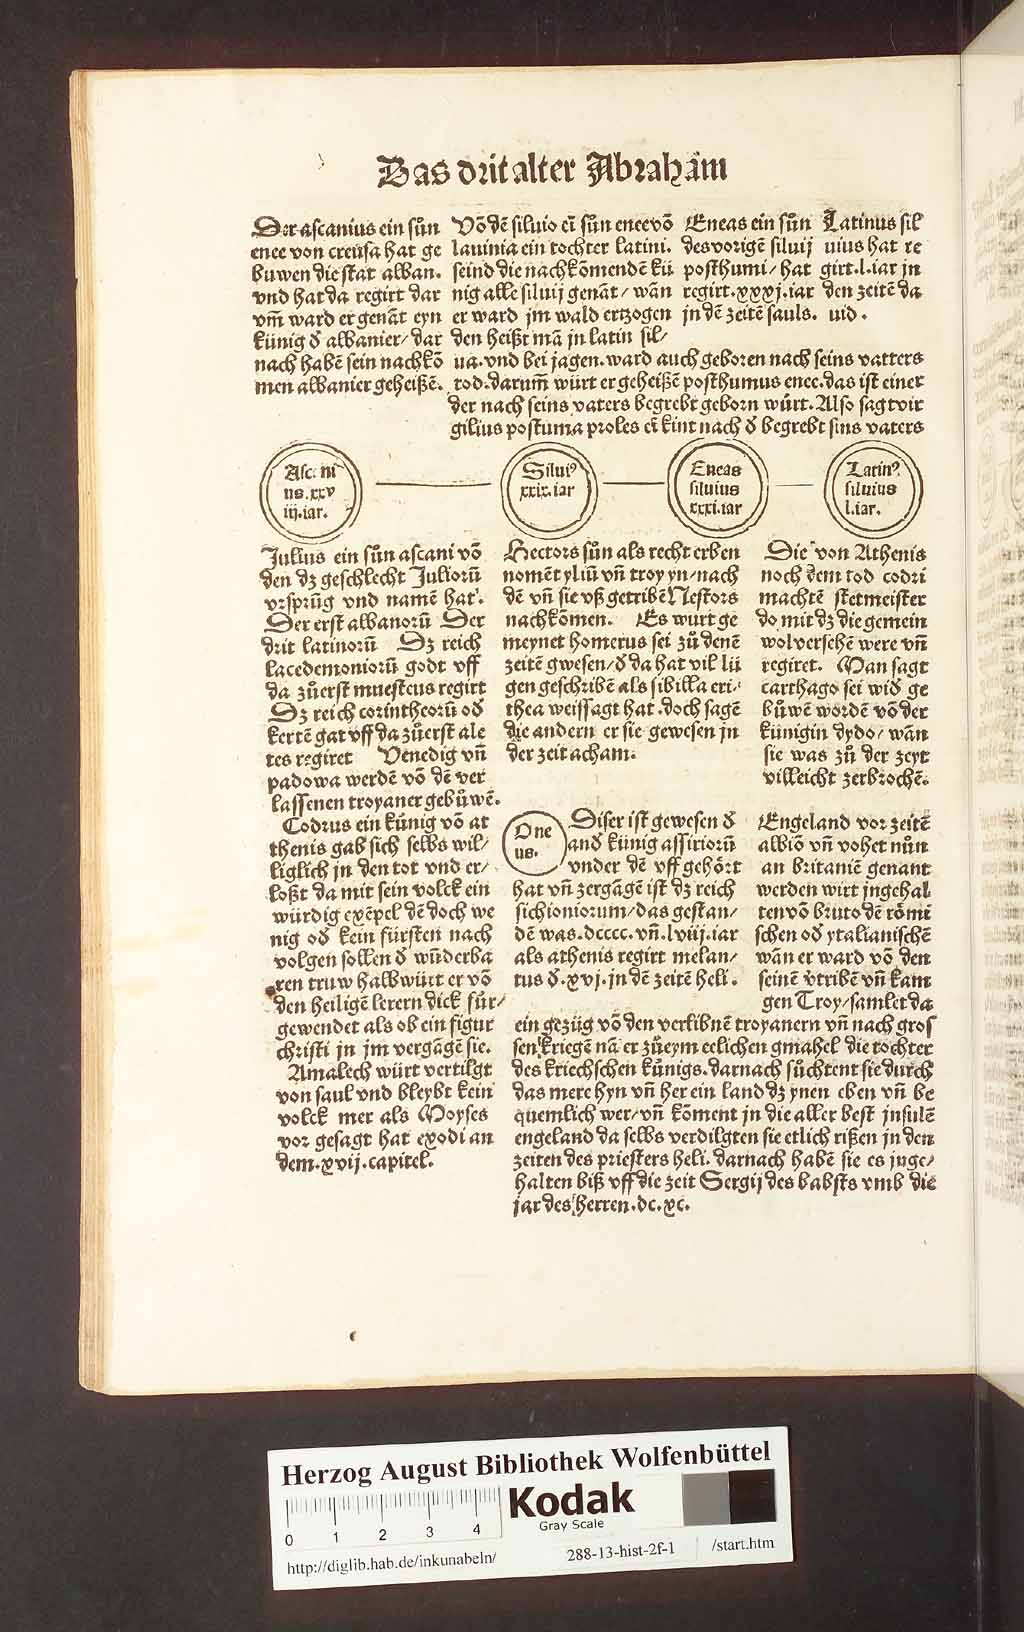 Das drit alter Abrahäm
Der ascanius ein sůn
enee von creusa hat ge
buwen die stat alban.
vnd hat da regirt dar
vm̃ ward er genãt eyn
künig d̕ albanier/ dar
nach habẽ sein nachkõ
men albanier geheißẽ.
Võ dẽ siluio eĩ sůn enee võ
lauinia ein tochter latini.
seind die nachkõmendẽ kü
nig alle siluij genãt/ wãn
er ward jm wald ertzogen
den heißt mã jn latin sil/
Eneas ein sůn
des vorigẽ siluij
posthumi/ hat
regirt.xxxj.iar
jn dẽ zeitẽ sauls.
Latinus sil
uius hat re
girt.l.iar jn
den zeitẽ da
uid.
ua.vnd bei jagen.ward auch geboren nach seins vatters
tod.darum̃ würt er geheißẽ posthumus enee.das ist einer
der nach seins vaters begrebt geborn würt. Also sagt vir
gilius postuma proles eĩ kint nach d̕ begrebt sins vaters
Asc. ni
us.xxv
iij.iar.
Silui⁹
xxix.iar
Eneas
siluius
xxxi.iar
Latin⁹.
siluius
l.iar.
Julius ein sůn ascani võ
den dz geschlecht Juliorũ
vrsprũg vnd namẽ hat.
Der erst albanorũ Der
drit latinorũ Dz reich
lacedemoniorũ godt vff
da zůerst muesteus regirt
Dz reich corintheorũ od̕
kertẽ gat vff da zůerst ale
tes regiret Venedig vñ
padowa werdẽ võ dẽ ver
lassenen troyaner gebůwẽ.
Codrus ein künig võ at
thenis gab sich selbs wil/
liglich jn den tot vnd er/
loßt da mit sein volck ein
würdig exẽpel dẽ doch we
nig od̕ kein fürsten nach
volgen sollen d̕ wũderba
ren truw halb würt er võ
den heiligẽ lerern dick für/
gewendet als ob ein figur
christi jn jm vergãgẽ sie.
Amalech würt vertilgt
von saul vnd bleybt kein
volck mer als Moyses
vor gesagt hat exodi an
dem.xvij.capitel.
Hectors sůn als recht erben
nomẽt yliũ vñ troy yn/ nach
dẽ vñ sie vß getribẽ Nestors
nachkõmen. Es wurt ge
meynet homerus sei zů denẽ
zeitẽ gwesen/ d̕ da hat vil lü
gen geschribẽ als sibilla eri/
thea weissagt hat.doch sagẽ
die andern er sie gewesen jn
der zeit acham.
Die von Athenis
noch dem tod codri
machtẽ stetmeister
do mit dz die gemein
wol versehẽ were vñ
regiret. Man sagt
carthago sei wid̕ ge
bůwẽ wordẽ võ der
künigin dydo/ wãn
sie was zů der zeyt
villeicht zerbrochẽ.
One
us.
Diser ist gewesen d̕
and̕ künig assiriorũ
vnder dẽ vff gehört
hat vñ zergãgẽ ist dz reich
sichioniorum/ das gestan/
dẽ was.dcccc.vñ.lviij.iar
als athenis regirt melan/
tus d̕.xvj.in dẽ zeitẽ heli.
Engeland vor zeitẽ
albiõ vñ vohet nůn
an britaniẽ genant
werden wirt jngehal
ten võ bruto dẽ römi
schen od̕ ytalianischẽ
wan er ward võ den
seinẽ v̕tribẽ vñ kam
gen Troy/ samlet da
ein gezüg võ den verlibnẽ troyanern vñ nach gros
sen kriegẽ nã er zů eym eelichen gmahel die tochter
des kriechschen künigs.darnach sůchtent sie durch
das mere hyn vñ her ein land dz ynen eben vñ be
quemlich wer/ vñ kõment jn die aller best insulẽ
engeland da selbs verdilgten sie etlich rißen jn den
zeiten des priesters heli. darnach habẽ sie es inge/
halten biß vff die zeit Sergij des babsts vmb die
jar des herren.dc.xc.
Herzog August Bibliothek Wolfenbüttel
0 1 2 3 4
Kodak
Gray Scale
http://diglib.hab.de/inkunabeln/ 288-13-hist-2f-1 /start.htm